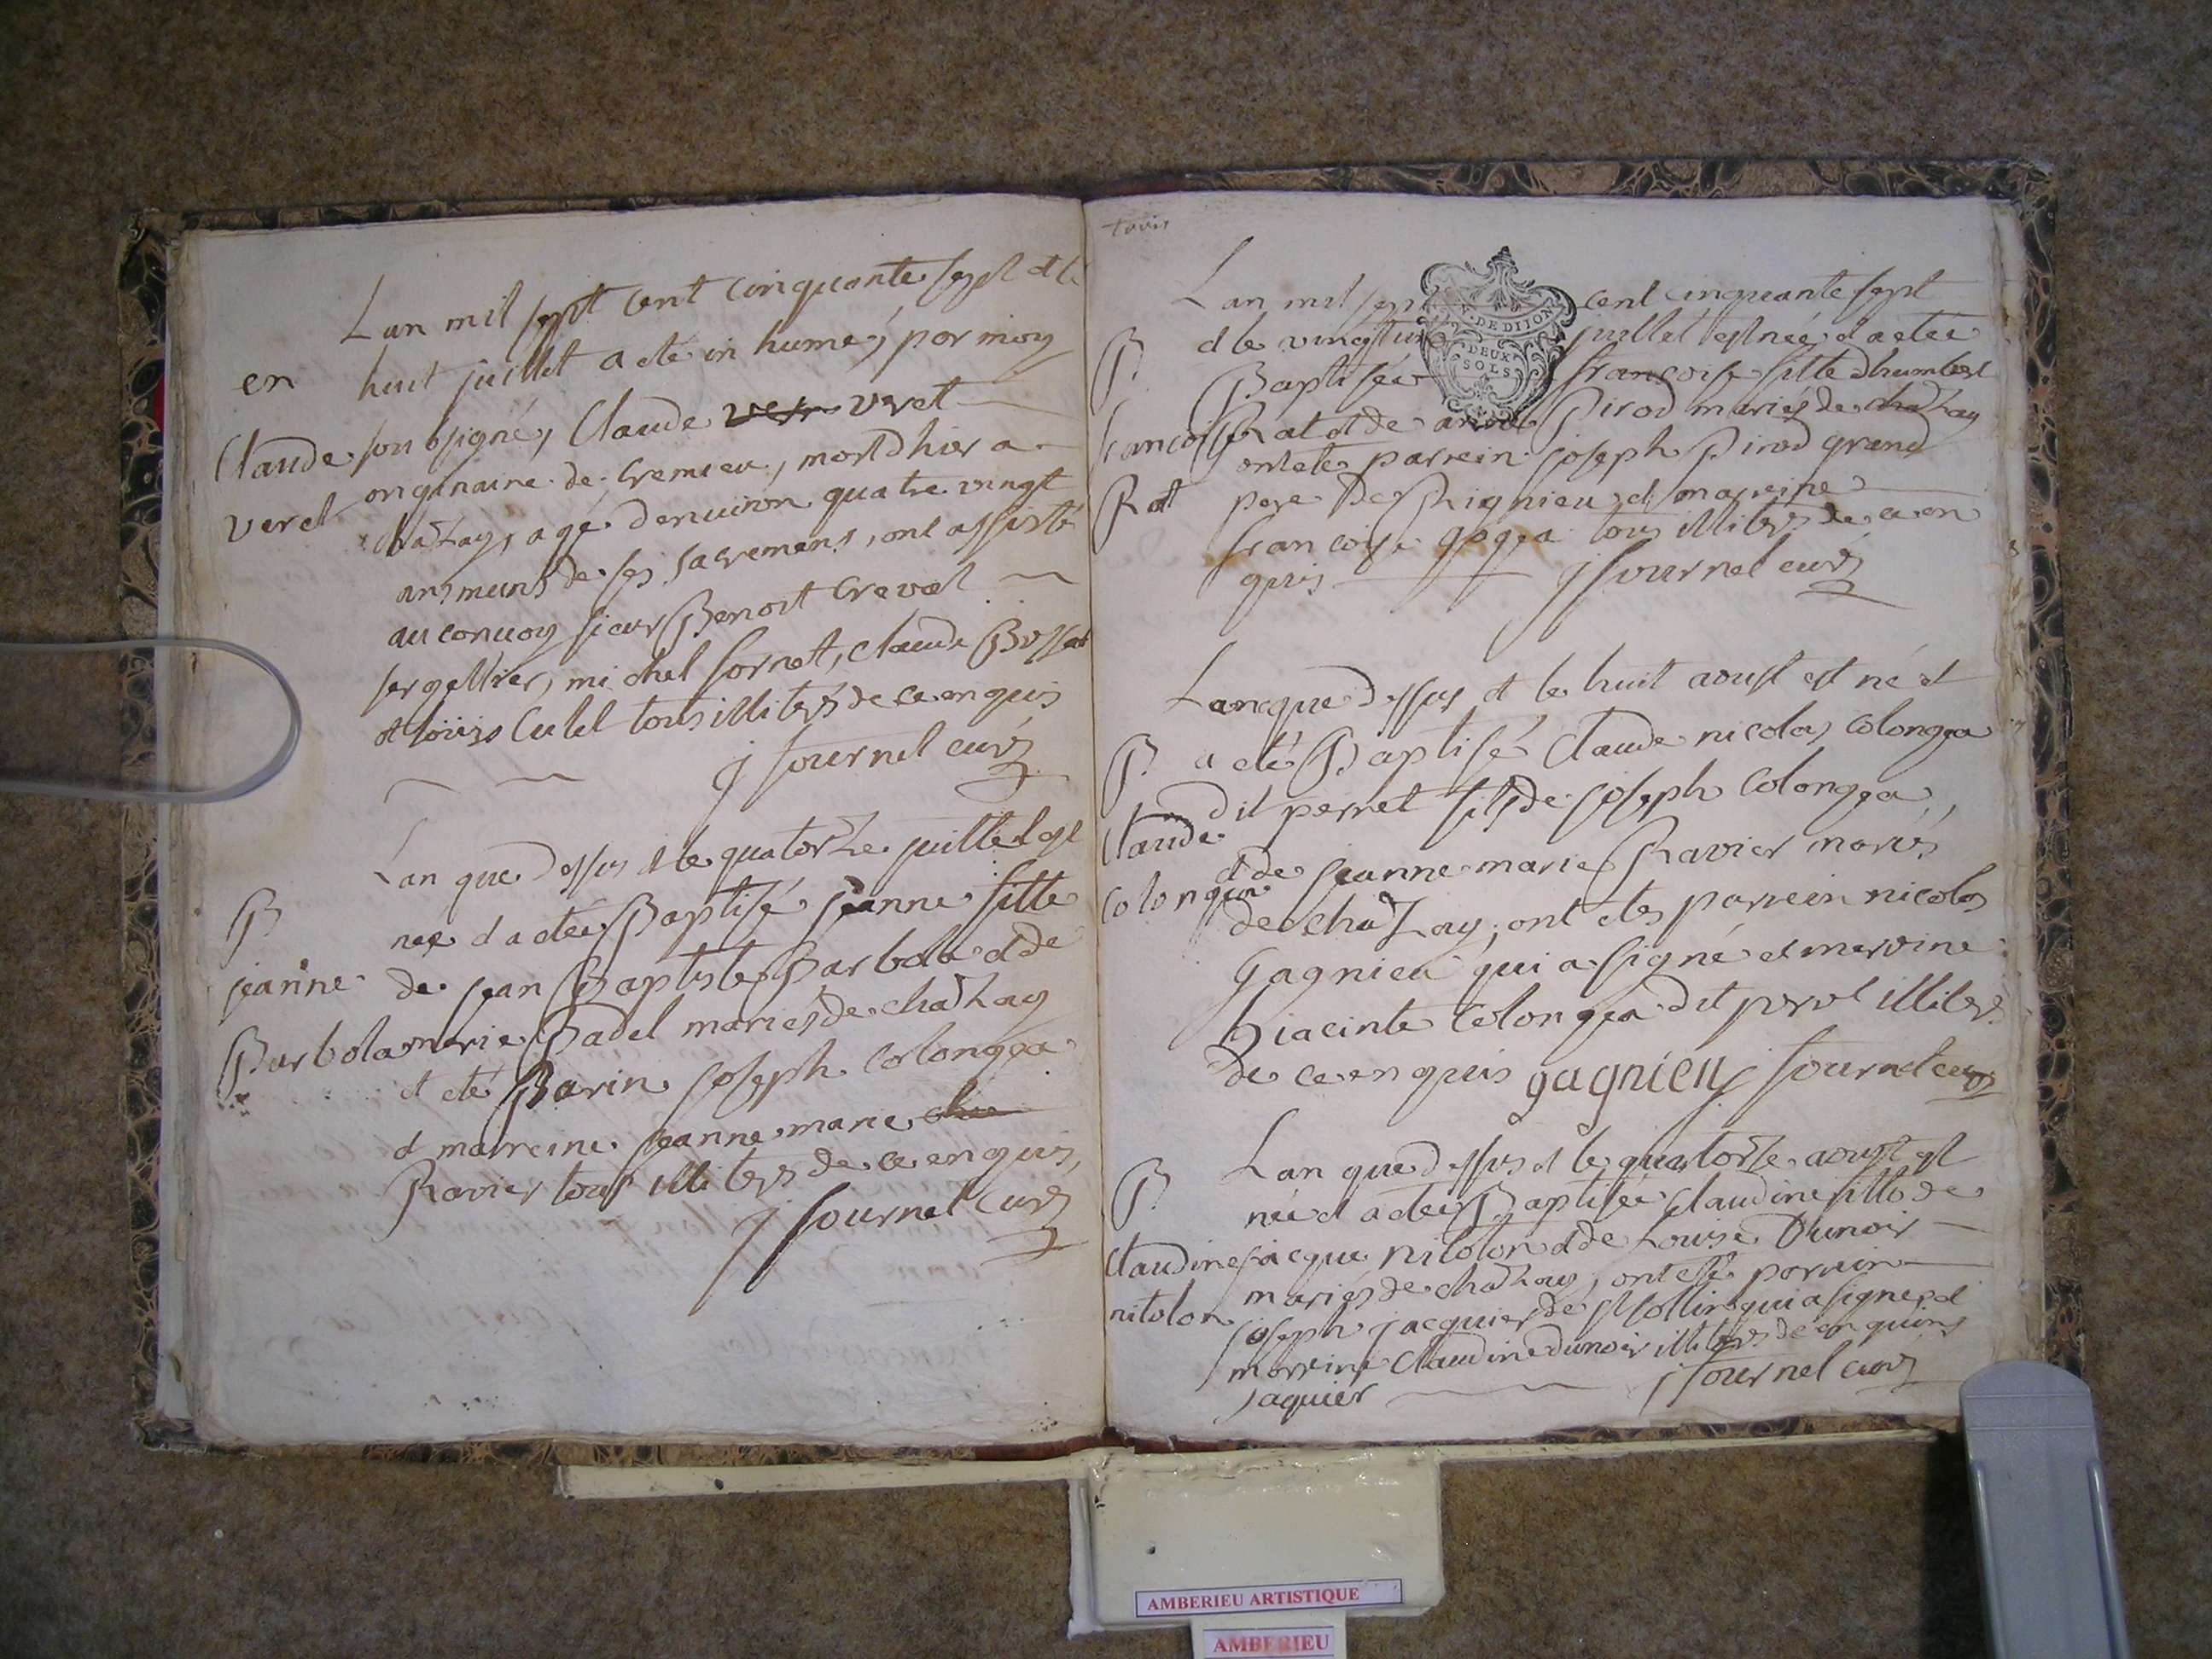 Lan mil sept cent cinquante sept et le
en
huit juillet a eté in humé, par moy
Claude
sousigné, Claude veret
veret
originaire de Cremieu, mort dhier a
chaZay, agé denviron quatre vingt
ans muns de ses sacremens, ont assisté
au convoy sieur Benoit Crevat
ser gettier, michel fornet, Claude
et loüis Culet tous illiterés de ce enquis
j fournel curé
Lan que dessus et le quatorze juillet est
B
née et a eteé Baptisé jeanne fille
jeanne
de jean Baptiste Barbolat et de
Barbola
marie Padel mariés de chaZay
et eté Parin joseph Colongea
et mareine jeanne marie
Ravier tous illiterés de ce enquis,
j fournel curé
trois
Lan mil sept cent cinquante sept
B
et le vingt juillet est née et a eteé
Baptisée francoise fille dhumbert
francoise
Rat et de Pirod mariés de chaZay
ont eté parrein joseph Pirod grand
Rat
pere De Rignieu et marreine
francoise gogea tous illiterés de ce en
quis j fournel curé
DE DIJON
DEUX
SOLS
Lan que dessus et le huit aoust est né et
B
a eté Baptisé Claude nicolas Colongea
dit perret fils de joseph Colongea,
Claude
et de jeanne marie Ravier mariés
Colongea
de chaZay, ont etes parrein nicolas
Gagnieu qui a signé et marreine
hiacinte Colongea dit peret illiteré
de ce enquis gagnieu j fournel curé
Lan que dessus et le quatorze aoust est
B
née et a eteé Baptisée Claudine fille de
Claudine
jacque nitolon et de Louise Dunoir
mariés de chaZay, ont eté parrein
nitolon
joseph jacquier de st sollin qui a signé, et
marreine Claudine Dunoir illiterés de enquins
jaquier j fournel curé
AMBERIEU ARTISTIQUE
AMBERIEU